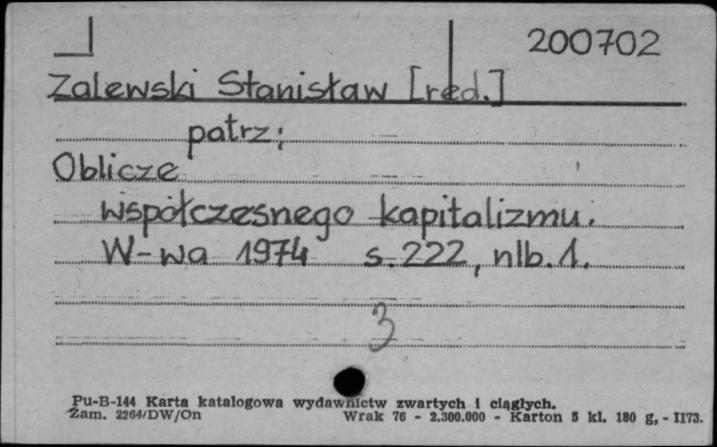 200702
Zalewski Stanisław [red.]
patrz:
Oblicze
współczesnego kapitalizmu.
W-wa 1974 s. 222, nlb. 1.
3
Pu-B-144 Karta katalogowa wydawnictw zwartych i ciągłych.
Zam. 2264/DW/On Wrak 76 - 2.300.000 - Karton 5 kl. 180 g, - II73.